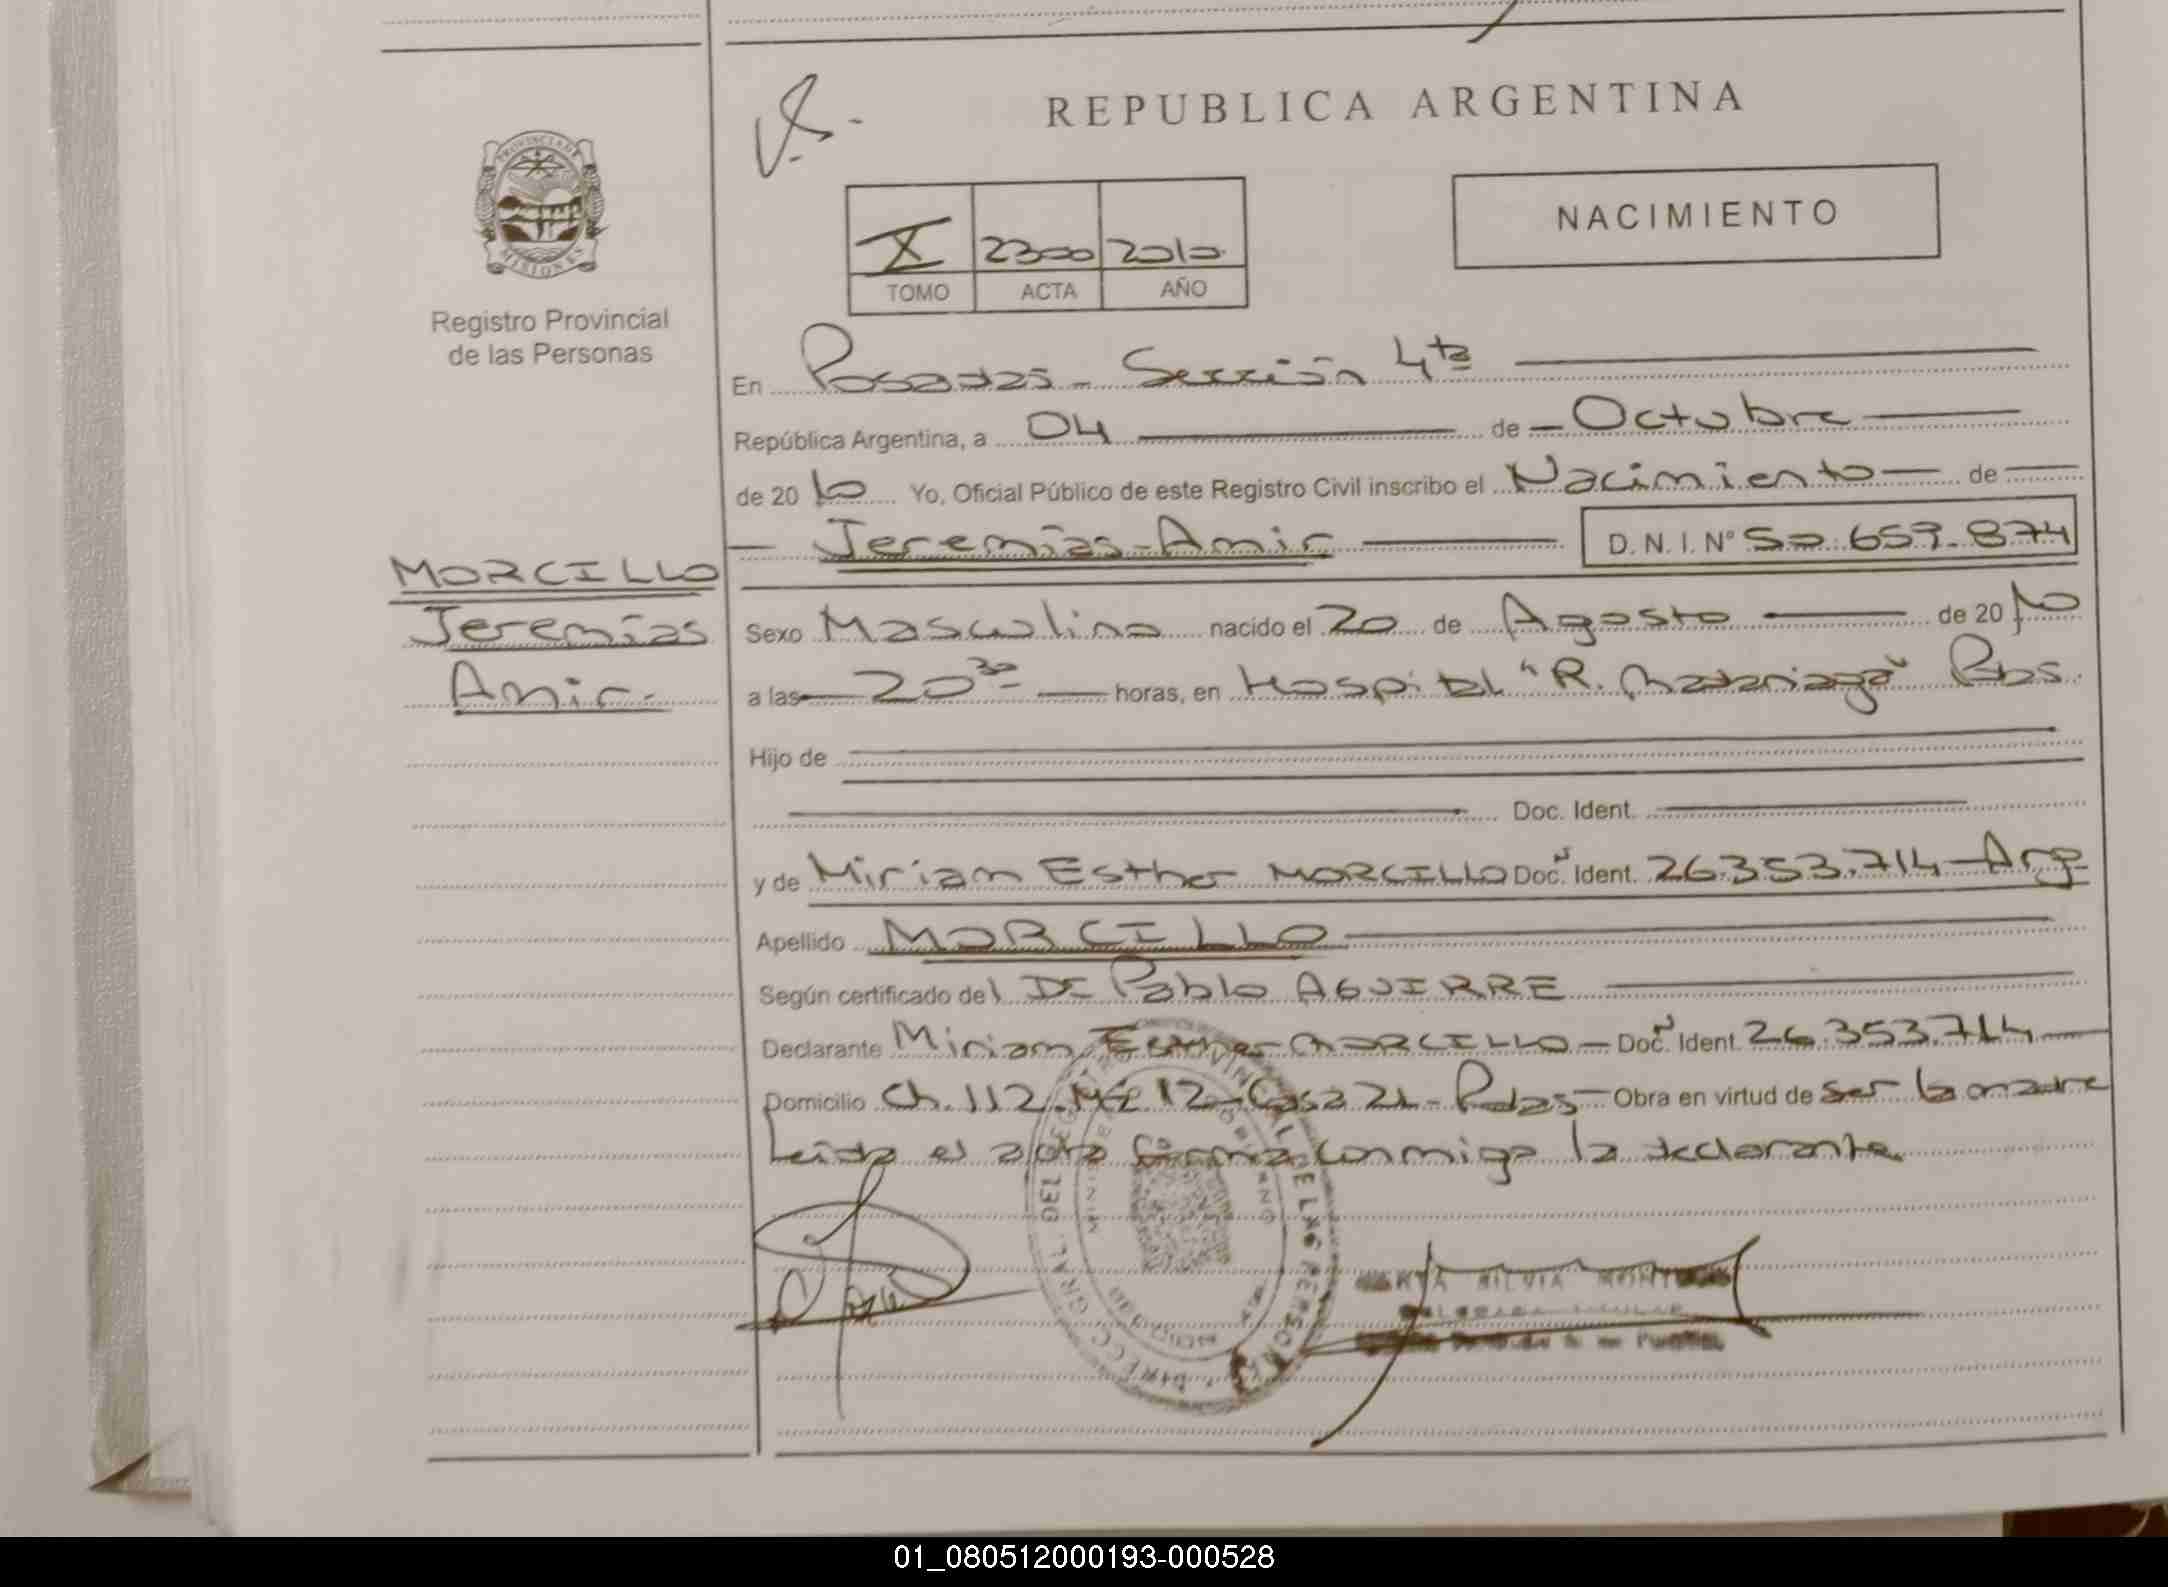 REPUBLICA ARGENTINA
NACIMIENTO
PROVINCIA DE
MISIONES
Registro Provincial
de las Personas
X 2300 2010
TOMO ACTA AÑO
En Posadas - Sección 4ta
República Argentina, a 04 de Octubre
de 2010 Yo, Oficial Público de este Registro Civil inscribo el Nacimiento de
Jeremías Amir D. N. I. N° 50.659.874
MORCILLO
Jeremías
Amir.-
Sexo Masculino nacido el 20 de Agosto de 2010
a las 20 30 horas, en Hospital "R. Madariaga" Pdas.
Hijo de
Doc. Ident.
y de Miriam Esther MORCILLO Doc. Ident. 26.353.714 - Arg
Apellido MORCILLO
Según certificado del Dr Pablo AGUIRRE
Declarante Miriam Esther MORCILLO - Doc. Ident. 26.353.714
Domicilio Ch. 112. Mz 12 - Casa 21 - Pdas - Obra en virtud de ser la madre
Leida el acta firma conmigo la declarante.
01_080512000193-000528